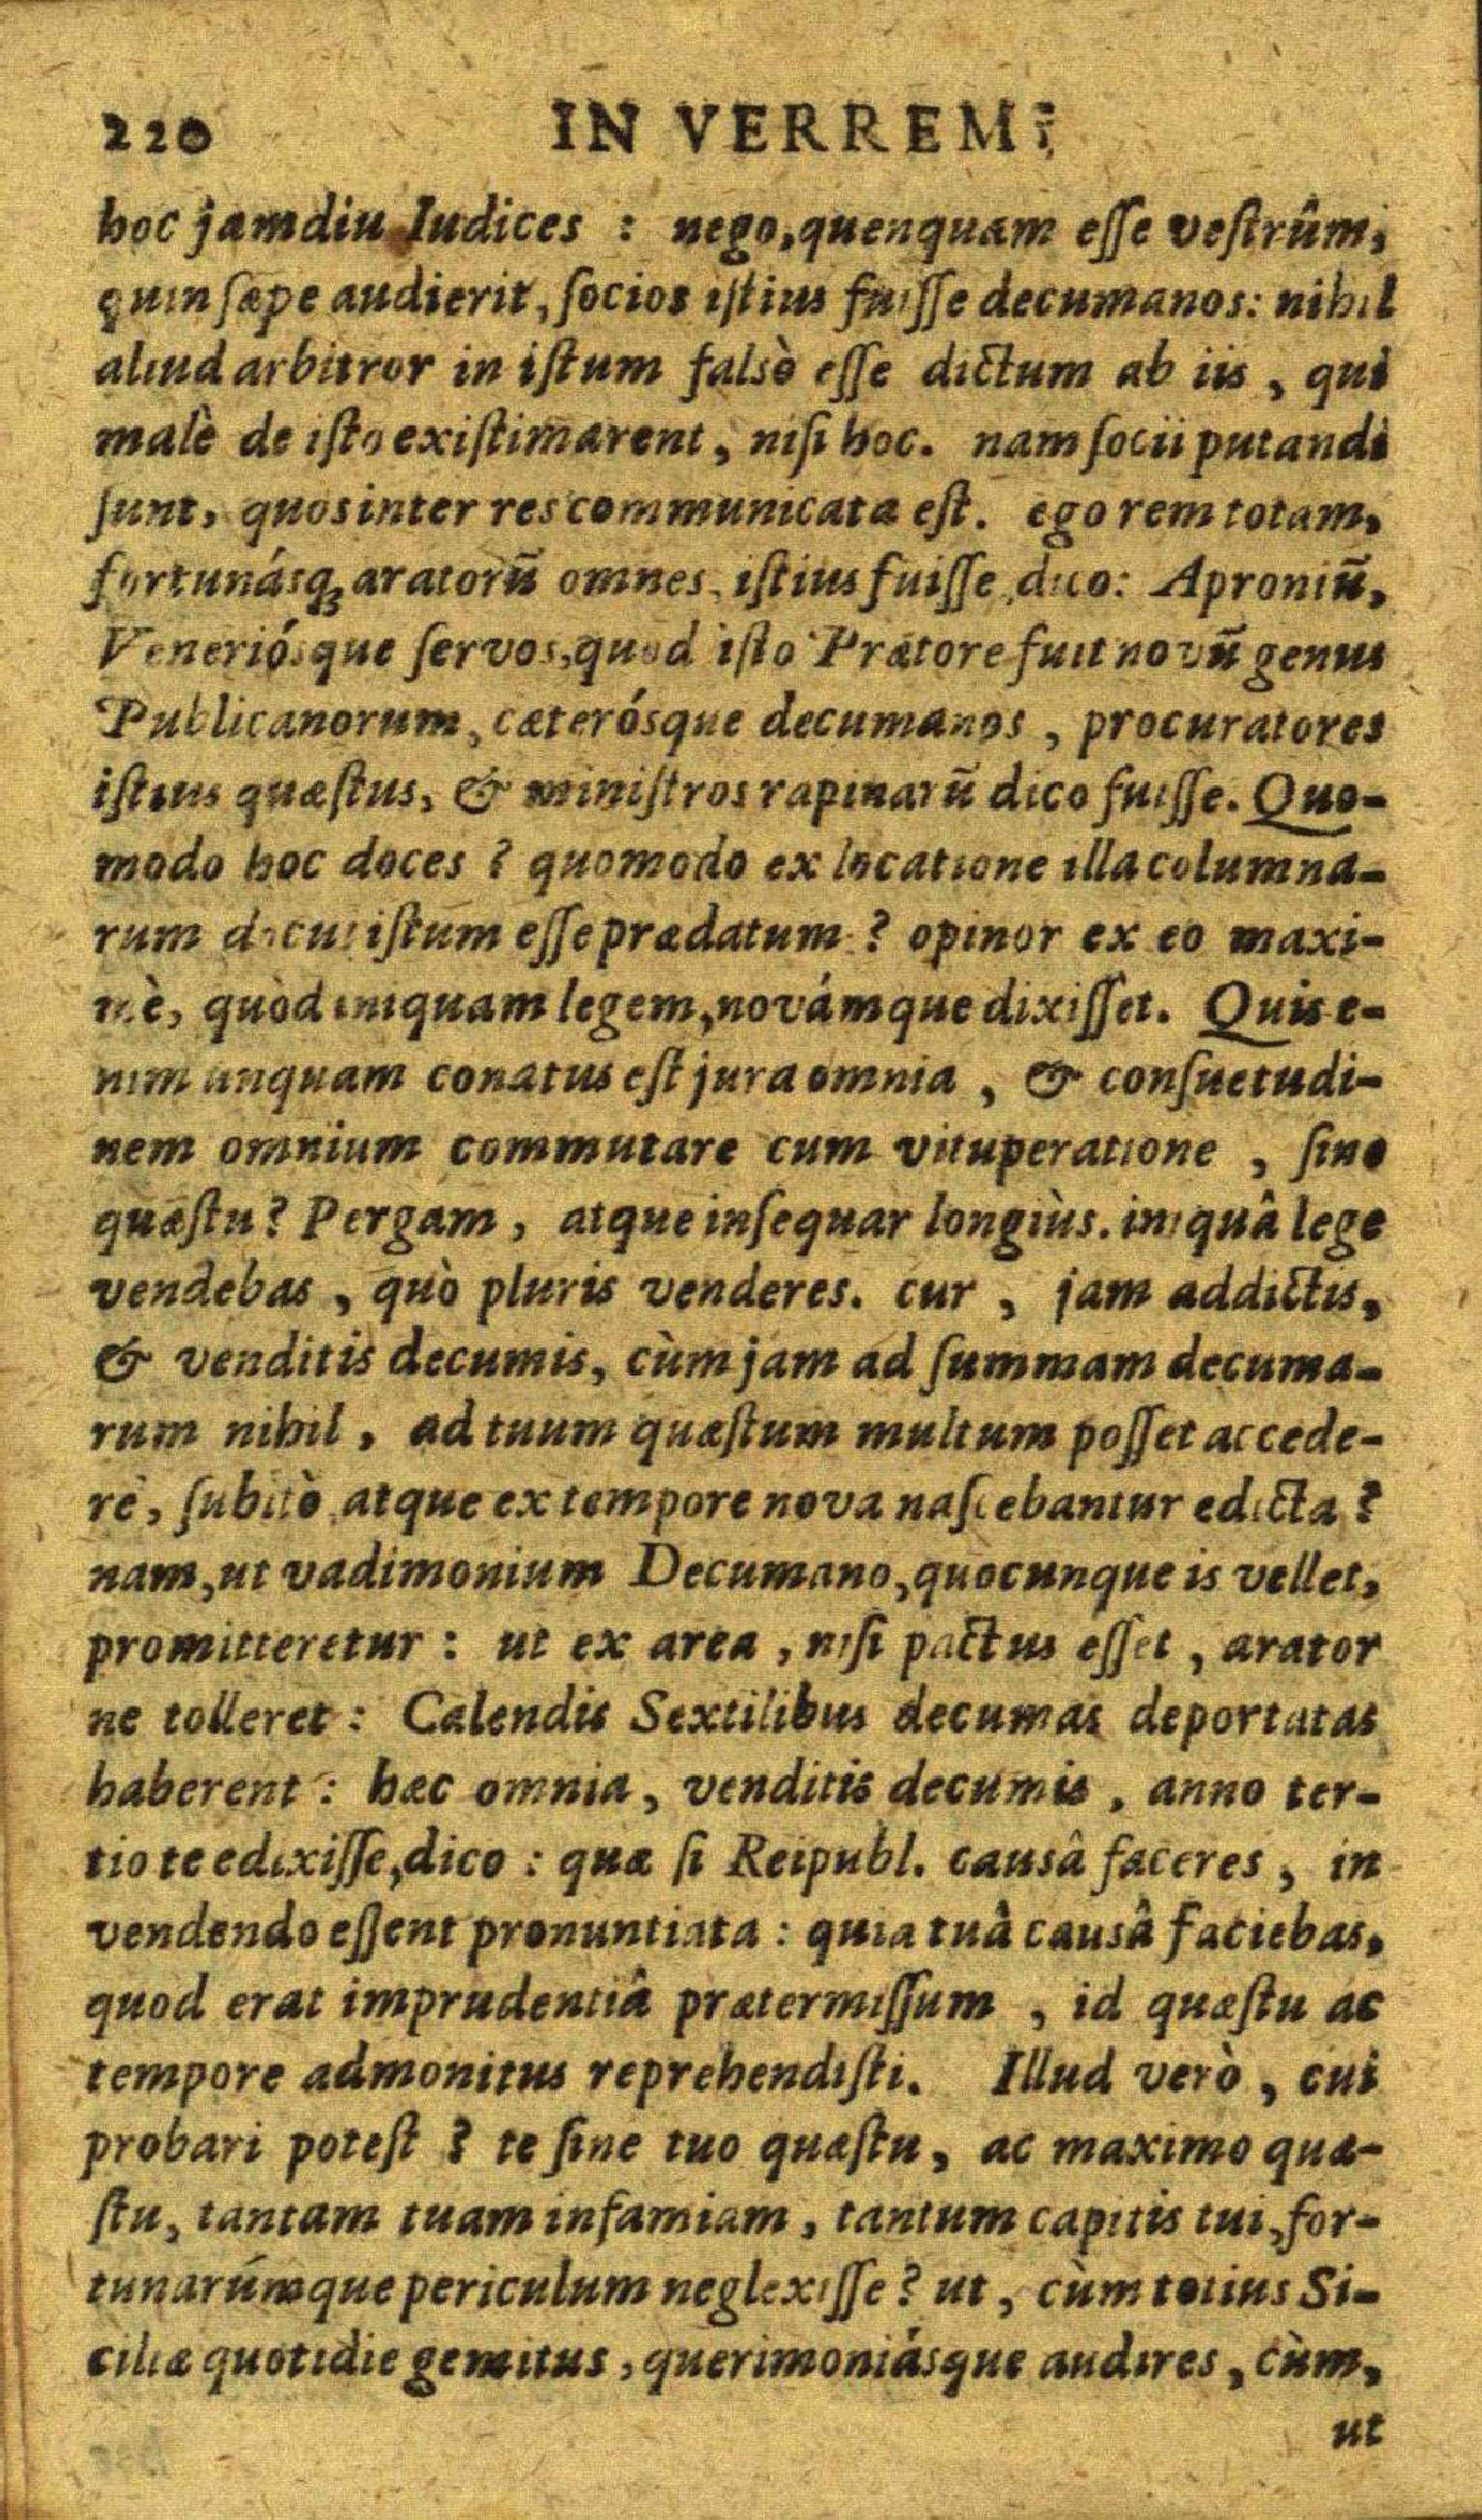 220 IN VERREM:
hoc jamdiu Iudices : nego, quenquam eſſe veſtrûm,
quin ſæpe audierit, ſocios iſtius fuiſſe decumanos: nihil
aliud arbitror in iſtum falsò eſſe dictum ab iis , qui
malè de iſto exiſtimarent, niſi hoc. nam ſocii putandi
ſunt, quos inter res communicata eſt. ego rem totam,
fortunásq; aratorũ omnes, iſtius fuiſſe dico: Aproniũ,
Veneriósque ſervos, quod iſto Prætore fuit novũ genus
Publicanorum, cæterósque decumanos , procuratores
iſtius quæſtus, & miniſtros rapinarũ dico fuiſſe. Quo-
modo hoc doces ? quomodo ex locatione illa columna-
rum docui iſtum eſſe prædatum ? opinor ex eo maxi-
mè, quòd iniquam legem, novámque dixiſſet. Quis e-
nim unquam conatus eſt jura omnia , & conſuetudi-
nem omnium commutare cum vituperatione , ſine
quæſtu? Pergam , atque inſequar longiùs. iniquâ lege
vendebas , quò pluris venderes. cur , jam addictis,
& venditis decumis, cùm jam ad ſummam decuma-
rum nihil , ad tuum quæſtum multum poſſet accede-
re, ſubitò atque ex tempore nova naſcebantur edicta ?
nam, ut vadimonium Decumano, quocunque is vellet,
promitteretur : ut ex area , niſi pactus eſſet , arator
ne tolleret : Calendis Sextilibus decumas deportatas
haberent : hæc omnia, venditis decumis , anno ter-
tio te edixiſſe, dico : quæ ſi Reipubl. causâ faceres , in
vendendo eſſent pronuntiata : quia tuâ causâ faciebas,
quod erat imprudentiâ prætermiſſum , id quæſtu ac
tempore admonitus reprehendiſti. Illud verò , cui
probari poteſt ? te ſine tuo quæſtu, ac maximo quæ-
ſtu, tantam tuam infamiam , tantum capitis tui, for-
tunarúmque periculum neglexiſſe ? ut , cùm totius Si-
ciliæ quotidie gemitus , querimoniásque audires , cùm,
ut